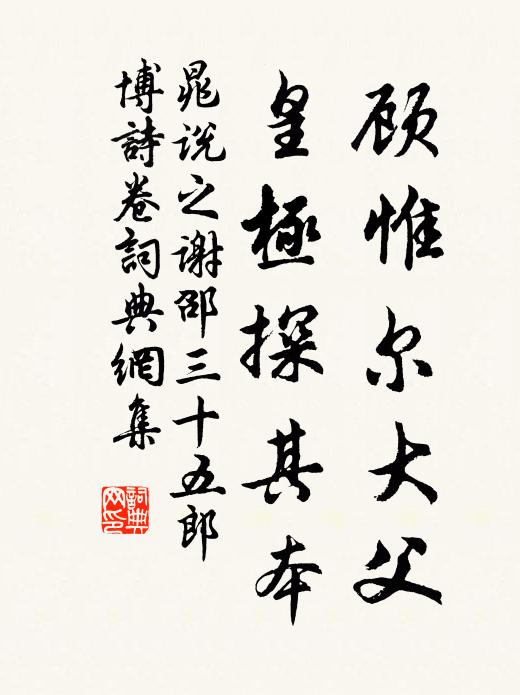 顾惟尔大父
皇極探其本
晁说之谢邵三十五郎
博詩卷詞典網集
詞典网印